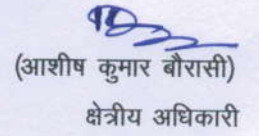 (आशीष कुमार बौरासी)
क्षेत्रीय अधिकारी